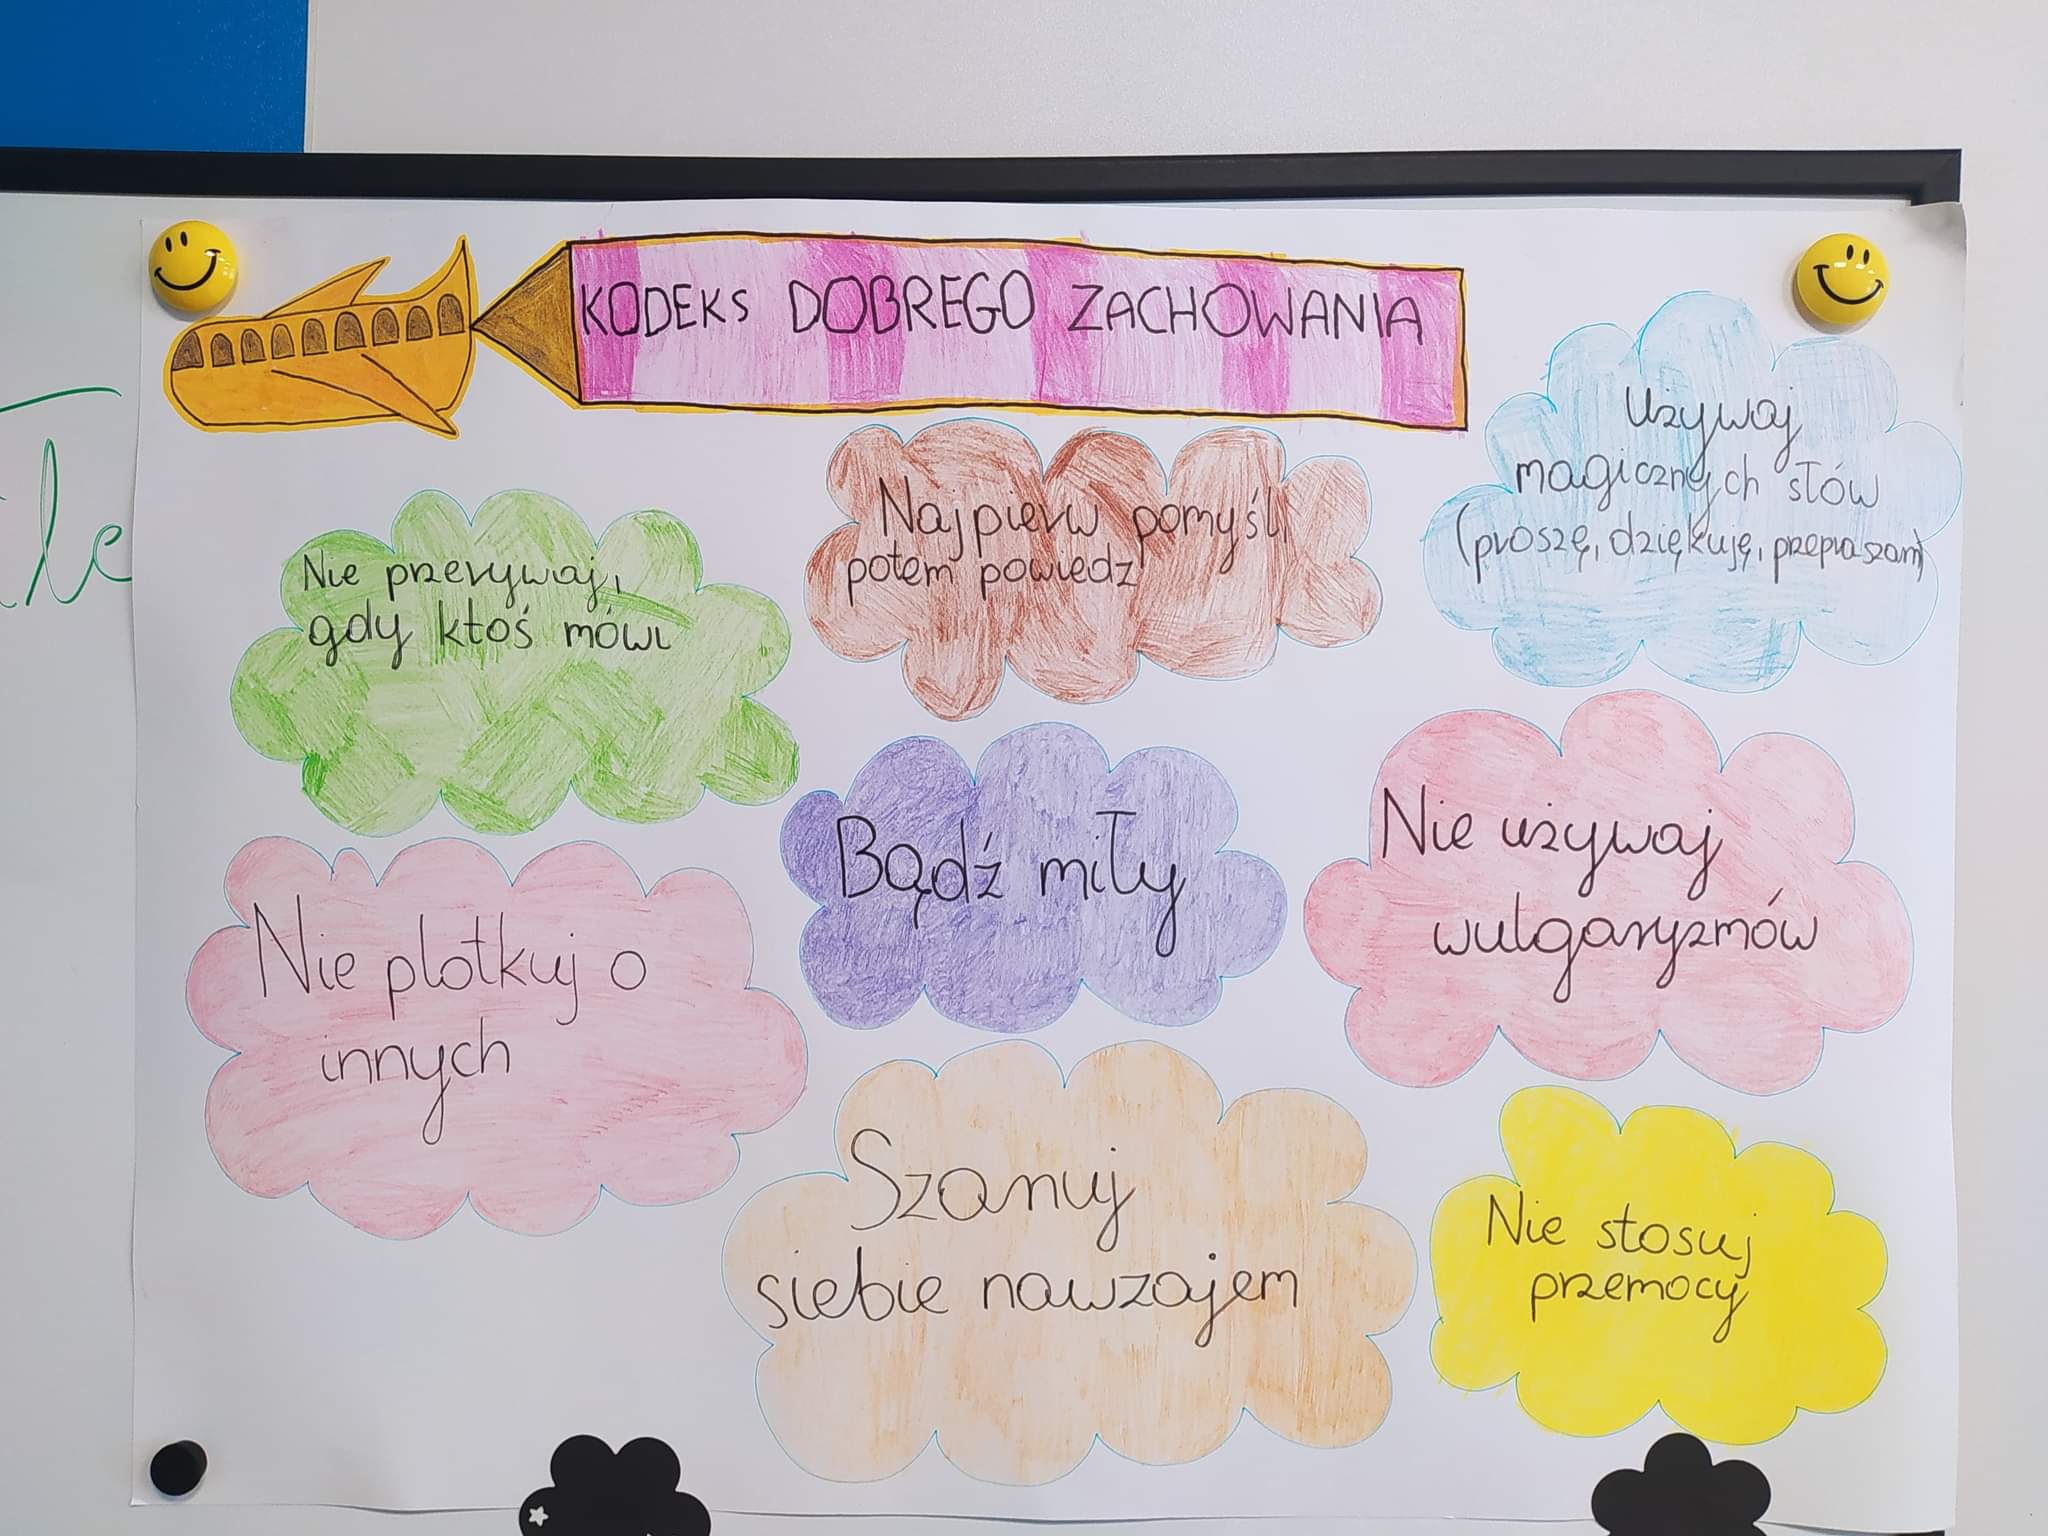 KODEKS DOBREGO ZACHOWANIA
Używaj
magicznych słów
(proszę, dziękuję, przepraszam)
Najpierw pomyśl,
potem powiedz
Nie przerywaj,
gdy ktoś mówi
Bądź miły
Nie używaj
wulgaryzmów
Nie plotkuj o
innych
Szanuj
siebie nawzajem
Nie stosuj
przemocy